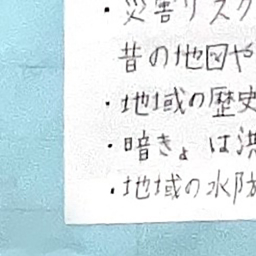 ・災害リスク
昔の地図や
・地域の歴史
・暗きょは洪
・地域の水防